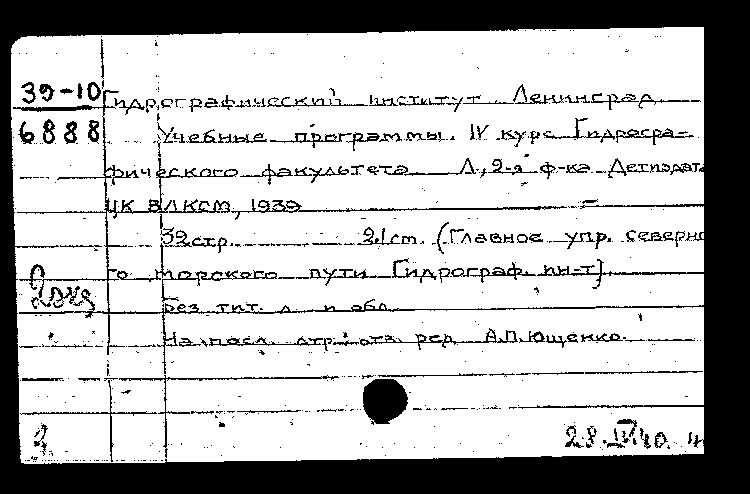 39-10 Гидрографический институт Ленинград.
6888 Учебные программы. IV курс Гидрогра-
фического факультета Л., 2-я ф-ка Детиздат
ЦК ВЛКСМ, 1939
32стр. 21 cm. (Главное упр. северно
го морского пути Гидрограф. ин-т].
2 экз Без тит. л. и обл.
На посл. стр.: отв. ред А.П.Ющенко.
28.IV 40.